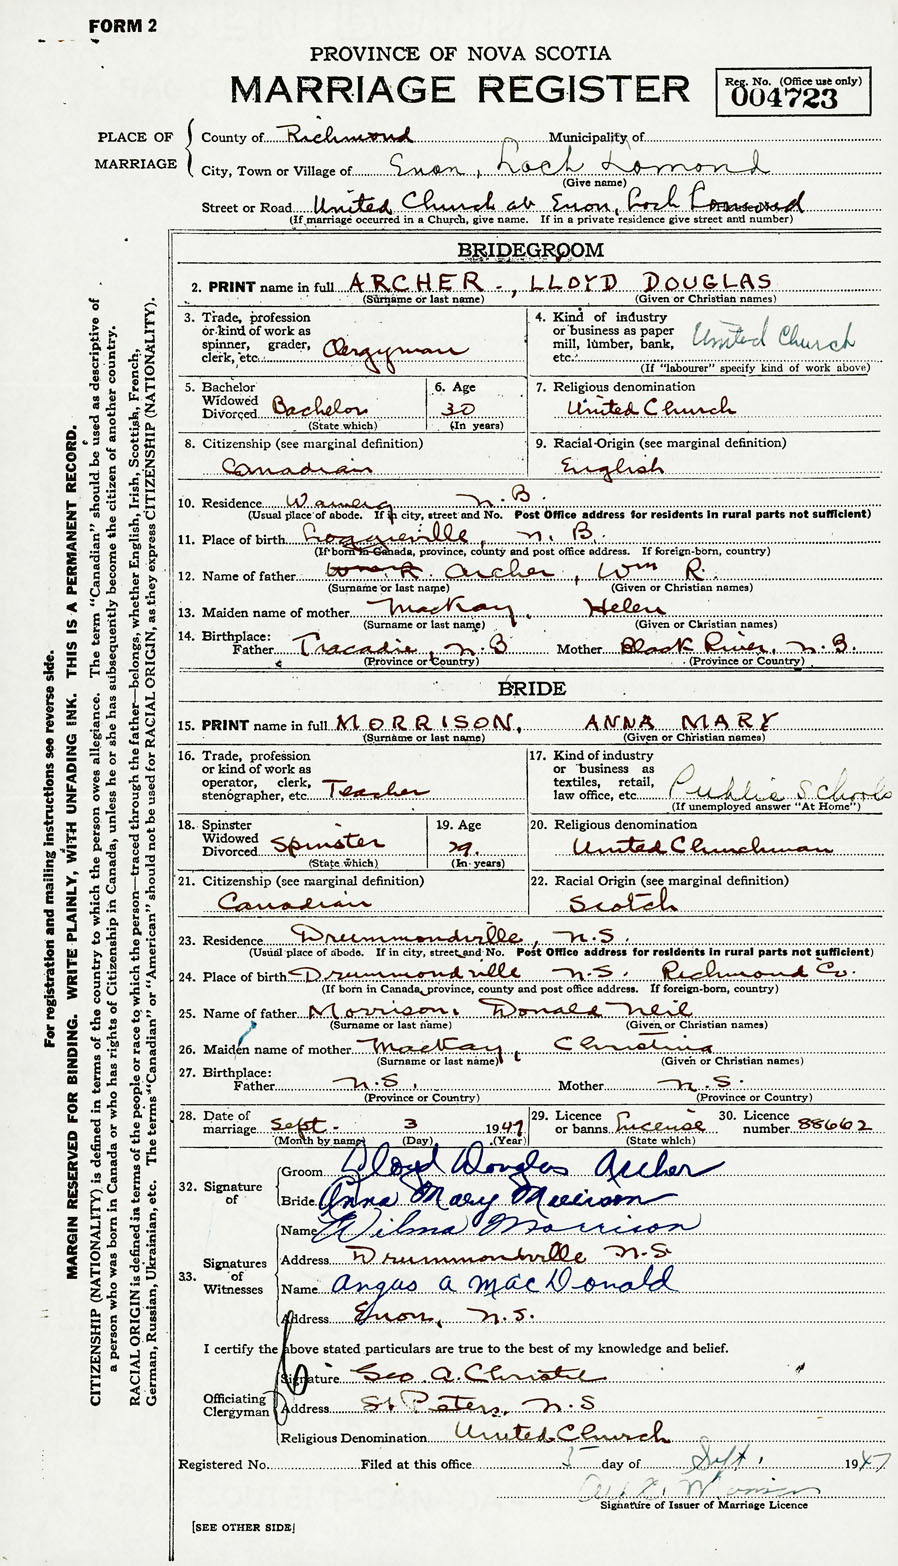 FORM 2
PROVINCE OF NOVA SCOTIA
MARRIAGE REGISTER
Reg. No. (Office use only)
004723
PLACE OF MARRIAGE
County of Richmond Municipality of
City, Town or Village of Enon, Loch Lomond
(Give name)
Street or Road United Church at Enon, Loch Lomond
(If marriage occurred in a Church, give name. If in a private residence give street and number)
BRIDEGROOM
2. PRINT name in full ARCHER -, LLOYD DOUGLAS
(Surname or last name) (Given or Christian names)
3. Trade, profession or kind of work as spinner, grader, clerk, etc. Clergyman
4. Kind of industry or business as paper mill, lumber, bank, etc. United Church
(If "labourer" specify kind of work above)
5. Bachelor Widowed Divorced Bachelor
(State which)
6. Age 30
(In years)
7. Religious denomination
United Church
8. Citizenship (see marginal definition)
Canadian
9. Racial Origin (see marginal definition)
English
10. Residence N.B.
(Usual place of abode. If in city, street and No. Post Office address for residents in rural parts not sufficient)
11. Place of birth Loggieville, N.B.
(If born in Canada, province, county and post office address. If foreign-born, country)
12. Name of father Archer, Wm R.
(Surname or last name) (Given or Christian names)
13. Maiden name of mother MacKay, Helen
(Surname or last name) (Given or Christian names)
14. Birthplace:
Father Tracadie, N.B Mother Black River, N.B.
(Province or Country) (Province or Country)
BRIDE
15. PRINT name in full MORRISON, ANNA MARY
(Surname or last name) (Given or Christian names)
16. Trade, profession or kind of work as operator, clerk, stenographer, etc. Teacher
17. Kind of industry or business as textiles, retail, law office, etc. Public Schools
(If unemployed answer "At Home")
18. Spinster Widowed Divorced Spinster
(State which)
19. Age 29.
(In years)
20. Religious denomination
United Churchman
21. Citizenship (see marginal definition)
Canadian
22. Racial Origin (see marginal definition)
Scotch
23. Residence Drummondville, N.S.
(Usual place of abode. If in city, street and No. Post Office address for residents in rural parts not sufficient)
24. Place of birth Drummondville N.S. Richmond Co.
(If born in Canada, province, county and post office address. If foreign-born, country)
25. Name of father Morrison, Donald Neil
(Surname or last name) (Given or Christian names)
26. Maiden name of mother MacKay, Christina
(Surname or last name) (Given or Christian names)
27. Birthplace:
Father N.S. Mother N.S.
(Province or Country) (Province or Country)
28. Date of marriage Sept. 3 1947
(Month by name) (Day) (Year)
29. Licence or banns License
(State which)
30. Licence number 88602
32. Signature of
Groom Lloyd Douglas Archer
Bride Anna Mary Morrison
33. Signatures of Witnesses
Name Wilma Morrison
Address Drummondville N.S
Name Angus A MacDonald
Address Enon, N.S.
I certify the above stated particulars are true to the best of my knowledge and belief.
Officiating Clergyman
Signature Geo. A. Christie
Address St Peters, N.S
Religious Denomination United Church
Registered No. Filed at this office 5 day of Sept. 1947
Signature of Issuer of Marriage Licence
[SEE OTHER SIDE]
For registration and mailing instructions see reverse side.
MARGIN RESERVED FOR BINDING. WRITE PLAINLY, WITH UNFADING INK. THIS IS A PERMANENT RECORD.
CITIZENSHIP (NATIONALITY) is defined in terms of the country to which the person owes allegiance. The term "Canadian" should be used as descriptive of
a person who was born in Canada or who has rights of Citizenship in Canada, unless he or she has subsequently become the citizen of another country.
RACIAL ORIGIN is defined in terms of the people or race to which the person—traced through the father—belongs, whether English, Irish, Scottish, French,
German, Russian, Ukrainian, etc. The terms "Canadian" or "American" should not be used for RACIAL ORIGIN, as they express CITIZENSHIP (NATIONALITY).